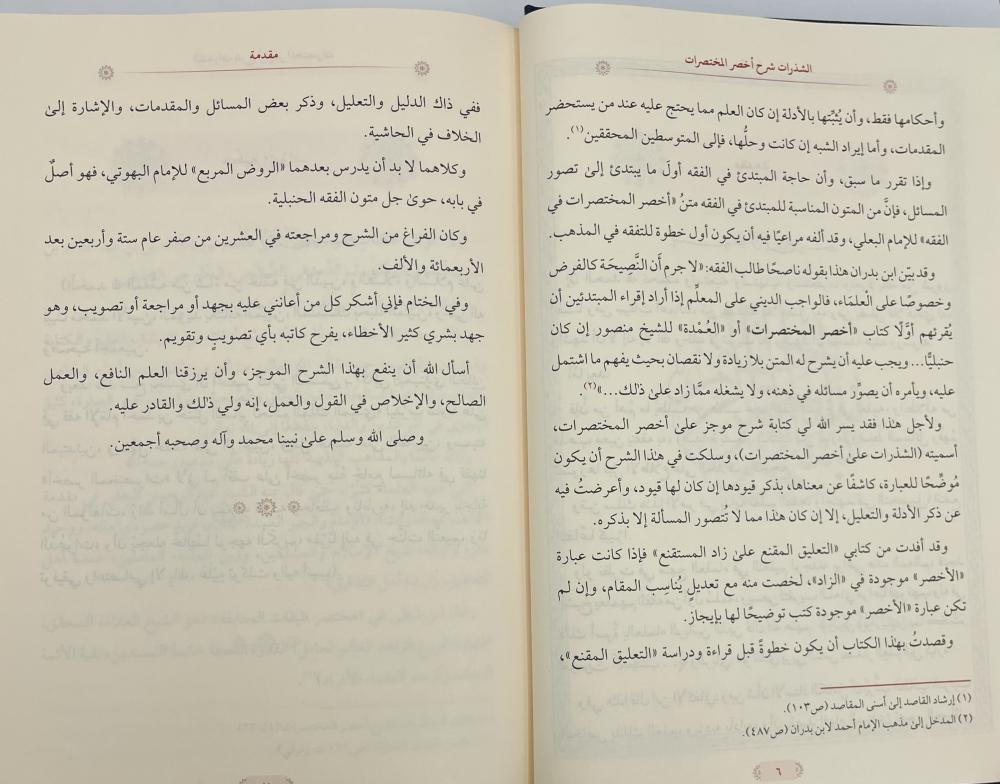 الشذرات شرح أخصر المختصرات
وأحكامها فقط، وأن يُثبِّتها بالأدلة إن كان العلم مما يحتج عليه عند من يستحضر
المقدمات، وأما إيراد الشبه إن كانت وحلُّها، فإلى المتوسطين المحققين(١).
وإذا تقرر ما سبق، وأن حاجة المبتدئ في الفقه أولَ ما يبتدئ إلىٰ تصور
المسائل، فإنَّ من المتون المناسبة للمبتدئ في الفقه متنُ «أخصر المختصرات في
الفقه» للإمام البعلي، وقد ألفه مراعيًا فيه أن يكون أول خطوة للتفقه في المذهب.
وقد بيّن ابن بدران هذا بقوله ناصحًا طالب الفقه: «لا جرم أَن النَّصِيحَة كالفرض
وخصوصًا علىٰ الْعلمَاء، فالواجب الديني على المعلِّم إذا أراد إقراء المبتدئين أن
يُقرئهم أوَّلًا كتاب «أخصر المختصرات» أو «العُمْدة» للشيخ منصور إن كان
حنبليًّا... ويجب عليه أن يشرح له المتن بلا زيادة ولا نقصان بحيث يفهم ما اشتمل
عليه، ويأمره أن يصوِّر مسائله في ذهنه، ولا يشغله ممَّا زاد علىٰ ذلك...»(٢).
ولأجل هذا فقد يسر الله لي كتابة شرح موجز علىٰ أخصر المختصرات،
أسميته (الشذرات علىٰ أخصر المختصرات)، وسلكت في هذا الشرح أن يكون
مُوضِّحًا للعبارة، كاشفًا عن معناها، بذكر قيودها إن كان لها قيود، وأعرضتُ فيه
عن ذكر الأدلة والتعليل، إلا إن كان هذا مما لا تُتصور المسألة إلا بذكره.
وقد أفدت من كتابي «التعليق المقنع علىٰ زاد المستقنع» فإذا كانت عبارة
«الأخصر» موجودة في «الزاد»، لخصت منه مع تعديلٍ يُناسِب المقام، وإن لم
تكن عبارة «الأخصر» موجودة كتب توضيحًا لها بإيجازٍ.
وقصدتُ بهذا الكتاب أن يكون خطوةً قبل قراءة ودراسة «التعليق المقنع»،
(١) إرشاد القاصد إلىٰ أسنى المقاصد (ص١٠٣).
(٢) المدخل إلىٰ مذهب الإمام أحمد لابن بدران (ص٤٨٧).
٦
مقدمة
ففي ذاك الدليل والتعليل، وذكر بعض المسائل والمقدمات، والإشارة إلىٰ
الخلاف في الحاشية.
وكلاهما لا بد أن يدرس بعدهما «الروض المربع» للإمام البهوتي، فهو أصلٌ
في بابه، حوىٰ جل متون الفقه الحنبلية.
وكان الفراغ من الشرح ومراجعته في العشرين من صفر عام ستة وأربعين بعد
الأربعمائة والألف.
وفي الختام فإني أشكر كل من أعانني عليه بجهد أو مراجعة أو تصويب، وهو
جهد بشري كثير الأخطاء، يفرح كاتبه بأي تصويبٍ وتقويم.
أسأل الله أن ينفع بهذا الشرح الموجز، وأن يرزقنا العلم النافع، والعمل
الصالح، والإخلاص في القول والعمل، إنه ولي ذالك والقادر عليه.
وصلى الله وسلم علىٰ نبينا محمد وآله وصحبه أجمعين.